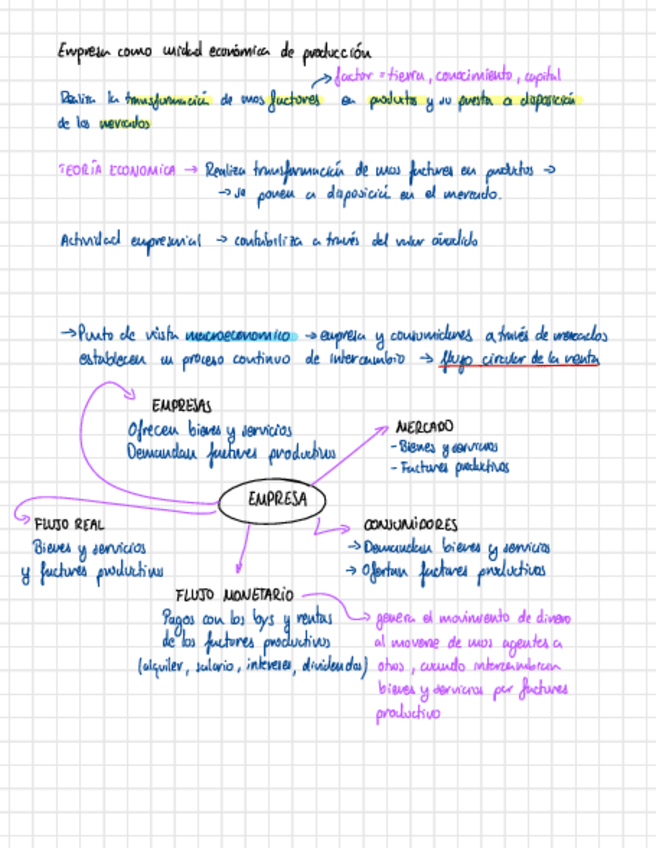 Empresa como unidad económica de producción
factor = tierra, conocimiento, capital
Realiza la transformación de unos factores en productos y su puesta a disposición
de los mercados
TEORÍA ECONOMICA → Realiza transformación de unos factores en productos →
→ se ponen a disposición en el mercado.
Actividad empresarial → contabiliza a través del valor añadido
→ Punto de vista macroeconomico → empresa y consumidores a través de mercados
establecen un proceso continuo de intercambio → flujo circular de la renta
EMPRESAS
Ofrecen bienes y servicios
Demandan factores productivos
MERCADO
- Bienes y servicios
- Factores productivos
EMPRESA
FLUJO REAL
Bienes y servicios
y factores productivos
CONSUMIDORES
→ Demandan bienes y servicios
→ Ofertan factores productivos
FLUJO MONETARIO
Pagos con los bys y rentas
de los factores productivos
(alquiler, salario, intereses, dividendos)
genera el movimiento de dinero
al moverse de unos agentes a
otros, cuando intercambian
bienes y servicios por factores
productivo